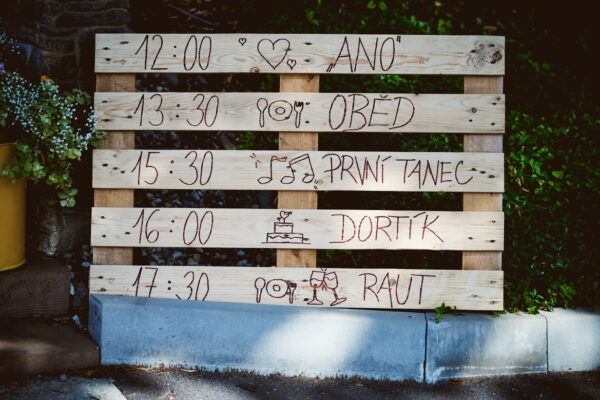 12:00 „ANO“
13:30 OBĚD
15:30 PRVNÍ TANEC
16:00 DORTÍK
17:30 RAUT